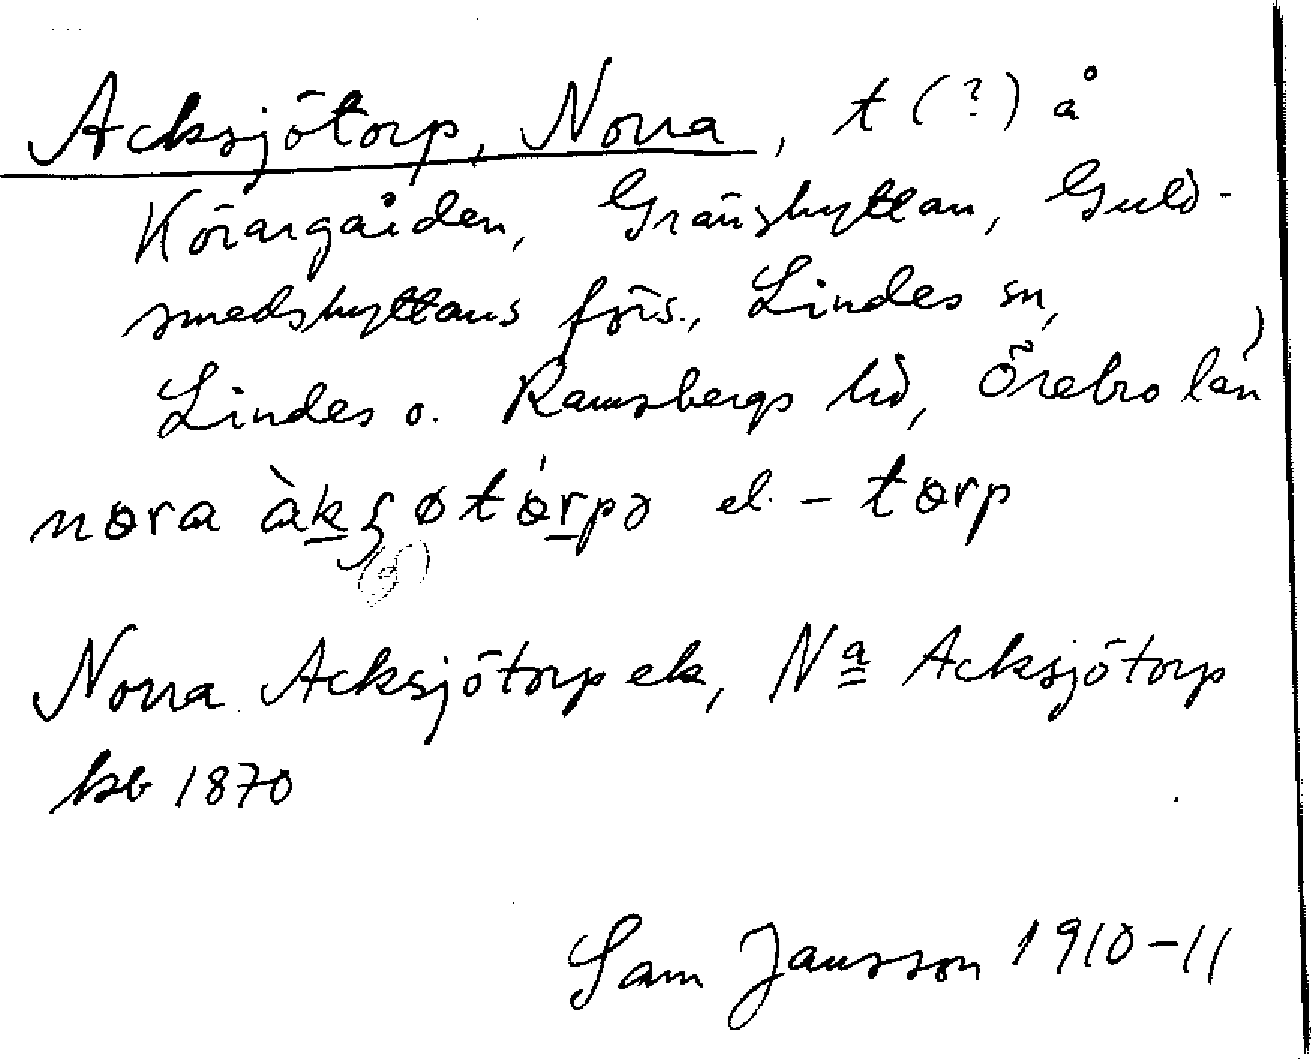 Acksjötorp, Norra, t (?) å
Körargården, Gränshyttan, Guld-
smedshyttans förs., Lindes sn,
Lindes o. Ramsbergs hd, Örebro län
nora àkʂøtórpə el. -torp
Norra Acksjötorp ek, Nª Acksjötorp
kb 1870
Sam Jansson 1910-11